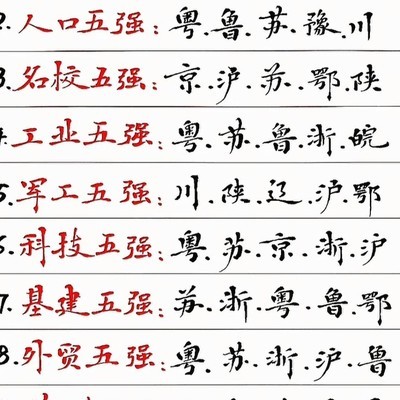 2.人口五强:粤.鲁.苏.豫.川
3.名校五强:京.沪.苏.鄂.陕
4.工业五强:粤.苏.鲁.浙.皖
5.军工五强:川.陕.辽.沪.鄂
6.科技五强:粤.苏.京.浙.沪
7.基建五强:苏.浙.粤.鲁.鄂
8.外贸五强:粤.苏.浙.沪.鲁